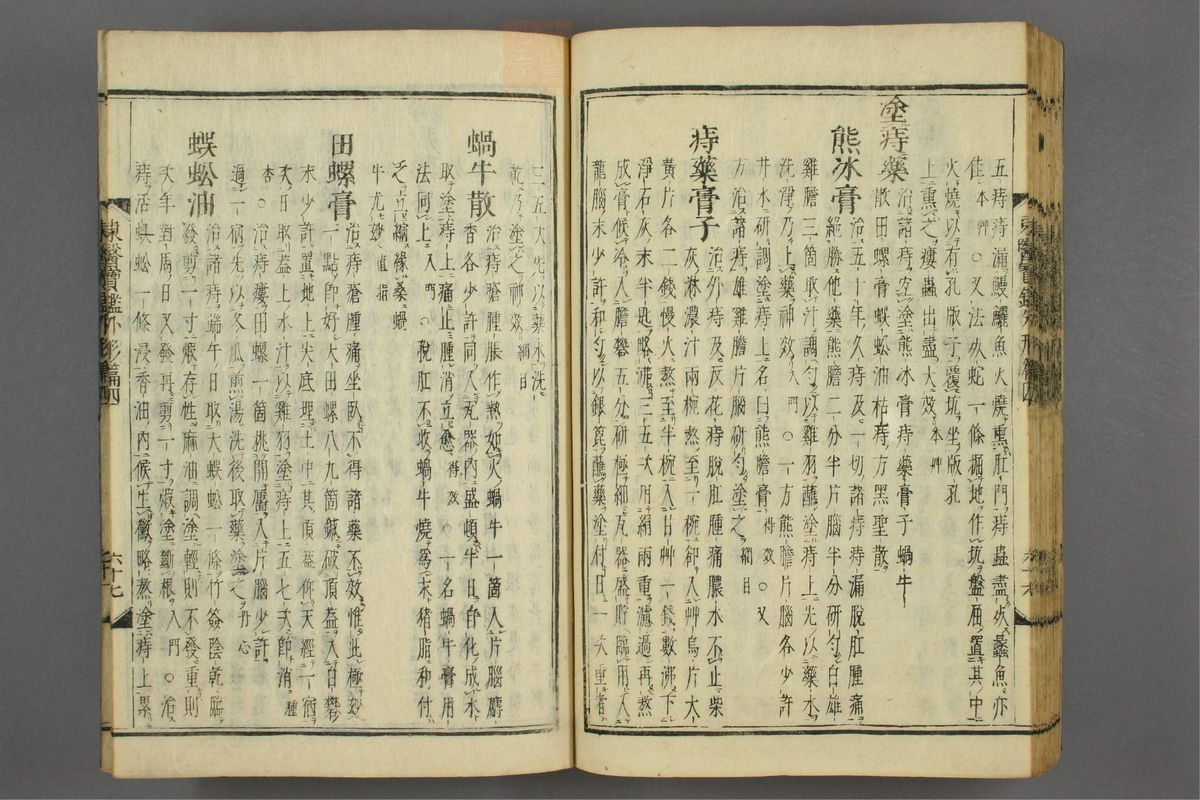 五痔痔漏鰻鱺魚火燒熏肛門痔蟲盡死蠡魚亦
佳本艸○又法死蛇一條掘地作坑盤屈置其中
火燒以有孔版子覆坑坐版孔
上熏之瘻蟲出盡大效本艸
塗痔藥 治諸痔宜塗熊冰膏痔藥膏子蝸牛
散田螺膏蜈蚣油枯痔方黑聖散
熊冰膏 治五十年久痔及一切諸痔痔漏脫肛腫痛
絕勝他藥熊膽二分半片腦半分研勻白雄
雞膽三箇取汁調勻以雞羽蘸塗痔上先以藥水
洗淨乃上藥神效入門○一方熊膽片腦各少許
井水研調塗痔上名曰熊膽膏得效○又
方治諸痔雄雞膽片腦研勻塗之綱目
痔藥膏子 治外痔及反花痔脫肛腫痛膿水不止柴
灰淋濃汁兩椀熬至一椀卻入艸烏片大
黃片各二錢慢火熬至半椀入甘艸一錢數沸下
淨石灰末半匙略沸三五次用絹兩重濾過再熬
成膏候冷入膽礬五分研極細瓦器盛貯臨用入
龍腦末少許和勻以銀篦蘸藥塗付日一次重者
三五次先以藥水洗
乾乃塗之神效綱目
蝸牛散 治痔瘡腫脹作熱如火蝸牛一箇入片腦麝
香各少許同入瓦器內盛頓半日自化成水
取塗痔上痛止腫消立愈得效○一名蝸牛膏用
法同上入門○脫肛不收蝸牛燒爲末猪脂和付
之立縮緣桑蝸
牛尤妙直指
田螺膏 治痔瘡腫痛坐臥不得諸藥不效惟此極妙
一點卽好大田螺八九箇鍼破頂蓋入白礬
末少許置地上尖底埋土中其頂蓋仰天經一宿
次日取蓋上水汁以雞羽塗痔上五七次卽消種
杏○治痔瘻田螺一箇挑開靨入片腦少許
過一宿先以冬瓜煎湯洗後取藥塗之丹心
蜈蚣油 治諸痔端午日取大蜈蚣一條竹簽陰乾臨
發剪二寸煆存性麻油調塗輕則不發重則
次年對周日發再剪一寸煆塗斷根入門○治
痔活蜈蚣一條浸香油內候生黴略熬塗痔上累
東醫寶鑑外形篇四
六十七